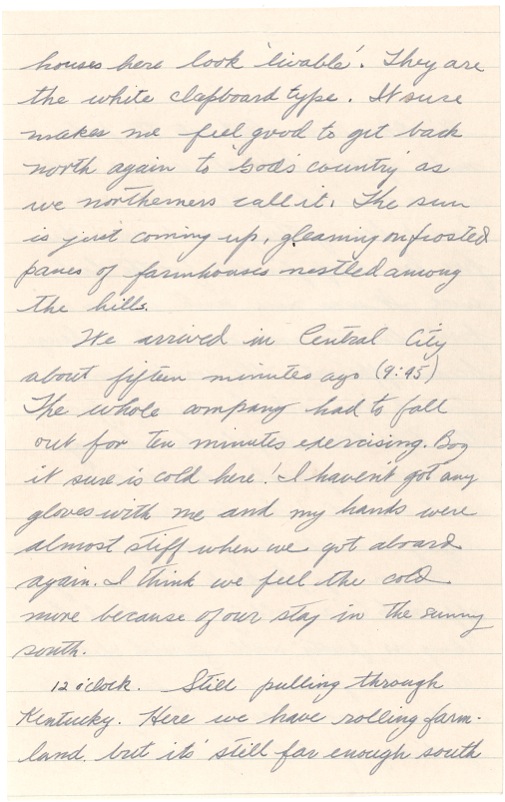 houses here look 'livable'. They are
the white clapboard type. It sure
makes me feel good to get back
north again to 'God's country' as
we northerners call it. The sun
is just coming up, gleaming on frosted
panes of farmhouses nestled among
the hills.
We arrived in Central City
about fifteen minutes ago (9:45)
The whole company had to fall
out for ten minutes exercising. Boy
it sure is cold here! I haven't got any
gloves with me and my hands were
almost stiff when we got aboard
again. I think we feel the cold
more because of our stay in the sunny
south.
12 o'clock. Still pulling through
Kentucky. Here we have rolling farm-
land. but it's still far enough south